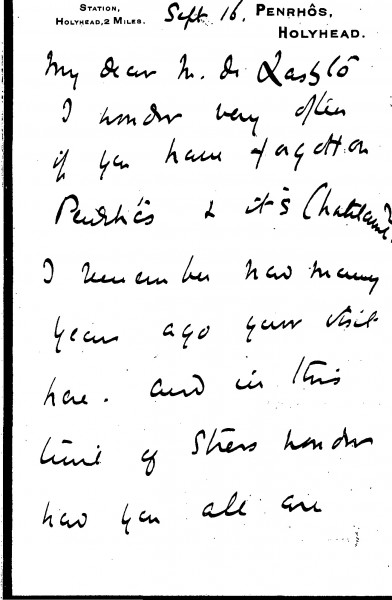 STATION,
HOLYHEAD, 2 MILES.
Sept 16.
PENRHÔS,
HOLYHEAD.
My dear M. de László
I wonder very often
if you have forgotten
Penrhôs & it's Chatelaine?
I remember how many
years ago your visit
here. and in this
time of Stress wonder
how you all are